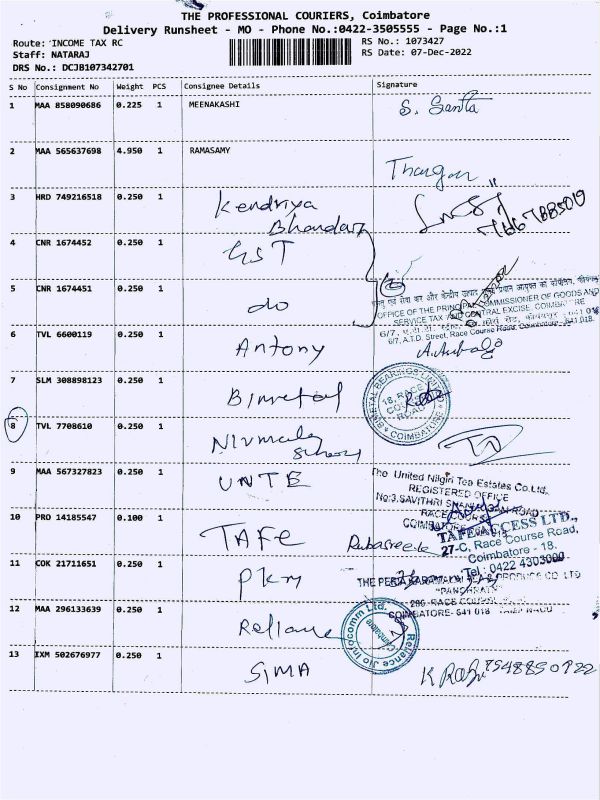 THE PROFESSIONAL COURIERS, Coimbatore
Delivery Runsheet - MO - Phone No.:0422-3505555 - Page No.:1
Route: INCOME TAX RC
RS No.: 1073427
Staff: NATARAJ
RS Date: 07-Dec-2022
DRS No.: DCJB107342701
S No Consignment No Weight PCS Consignee Details Signature
1 MAA 858090686 0.225 1 MEENAKASHI S. Santa
2 MAA 565637698 4.950 1 RAMASAMY
3 HRD 749216518 0.250 1 Kendriya
Bhandar
4 CNR 1674452 0.250 1 GST
5 CNR 1674451 0.250 1 do
OFFICE OF THE PRINCIPAL COMMISSIONER OF GOODS AND
SERVICE TAX AND CENTRAL EXCISE, COIMBATORE
6/7, A.T.D. Street, Race Course Road, Coimbatore - 641 018.
6 TVL 6600119 0.250 1 Antony
7 SLM 308898123 0.250 1 Bimetal
BIMETAL BEARINGS LIMITED
18, RACE
COURSE
ROAD
COIMBATORE
8 TVL 7708610 0.250 1 Nirmala
9 MAA 567327823 0.250 1 UNTE
The United Nilgiri Tea Estates Co.Ltd.,
REGISTERED OFFICE
No:3, SAVITHRI SHANMUGAM ROAD
RACE COURSE
COIMBATORE
10 PRO 14185547 0.100 1 TAFE
TAFE ACCESS LTD.,
27-C, Race Course Road,
Coimbatore - 18.
Tel : 0422 4303000
11 COK 21711651 0.250 1 PKM
PRODUCE CO LTD
"PANCHRATN"
286 RACE COURSE
COIMBATORE- 641 018 TAMIL NADU
12 MAA 296133639 0.250 1 Reliance
Reliance Jio Infocomm Ltd.
Coimbatore
13 IXM 502676977 0.250 1 SIMA